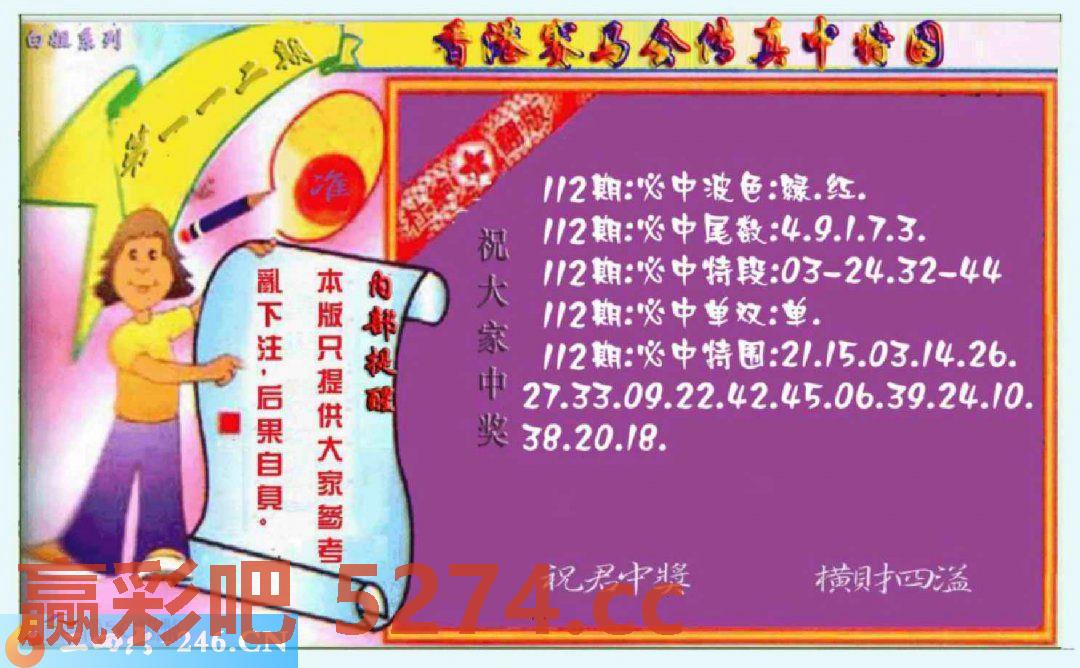 白姐系列
香港赛马会传真中特图
第一一二期
准
精版
内部提醒
本版只提供大家参考
亂下注,后果自負。
祝大家中奖
112期:必中波色:绿.红.
112期:必中尾数:4.9.1.7.3.
112期:必中特段:03-24.32-44
112期:必中单双:单.
112期:必中特围:21.15.03.14.26.
27.33.09.22.42.45.06.39.24.10.
38.20.18.
祝君中獎
橫財四溢
赢彩吧 5274.cc
246.CN